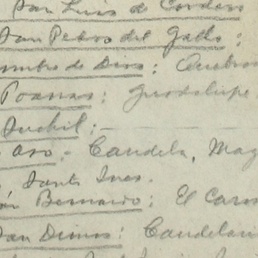 San Luis de Cordero
San Pedro del Gallo:
Nombre de Dios:
Poanas: Guadalupe
Suchil:
Oro: Candela, Mag
Santa Ines.
Bernardo: El Car
San Dimas: Candelari